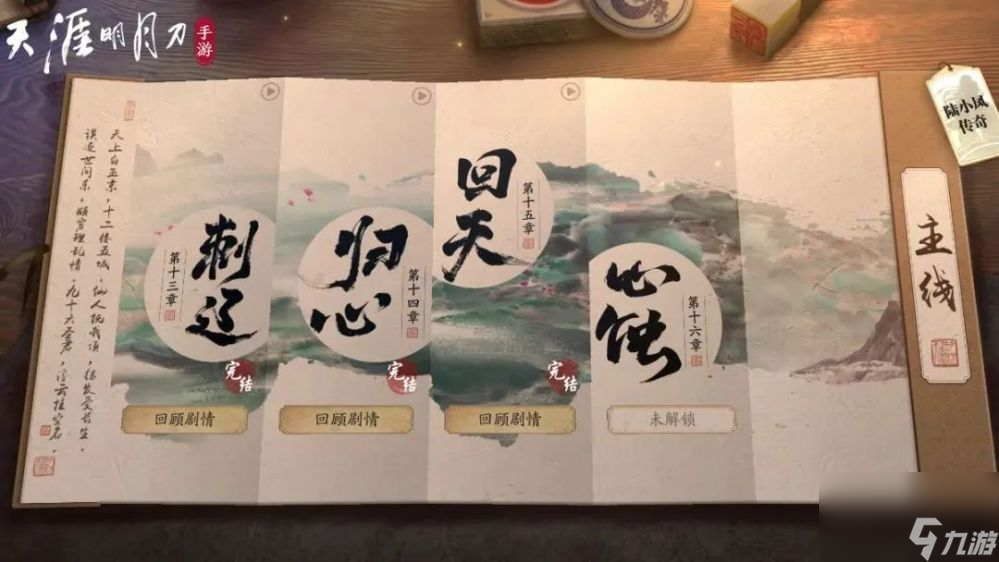 天涯明月刀
手游
天上白玉京,十二楼五城,仙人抚我顶,结发受长生,
误逐世间乐,颇穷理乱情,九十六圣君,浮云挂空名。
刺辽
第十三章
完结
回顾剧情
归心
第十四章
完结
回顾剧情
回天
第十五章
完结
回顾剧情
心蚀
第十六章
未解锁
主线
陆小凤
传奇
九游